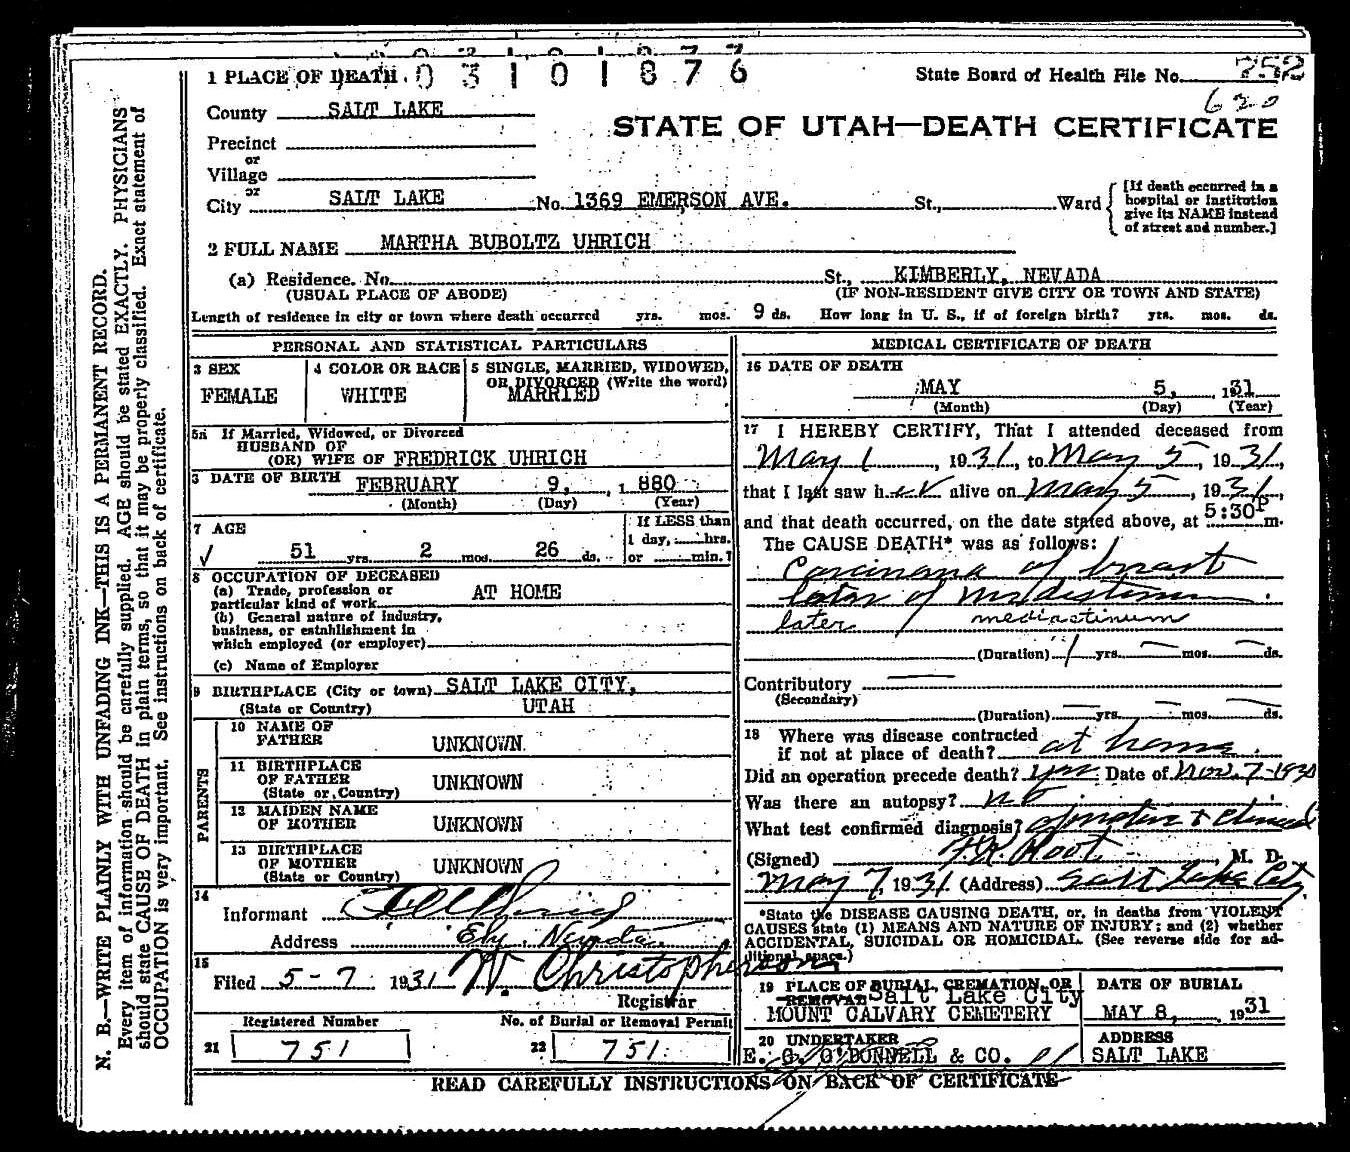 1 PLACE OF DEATH 0 3 1 0 1 8 7 6 State Board of Health File No. 752
620
County SALT LAKE
STATE OF UTAH—DEATH CERTIFICATE
Precinct
or
Village
or
City SALT LAKE No. 1369 EMERSON AVE. St., Ward
[If death occurred in a
hospital or institution
give its NAME instead
of street and number.]
2 FULL NAME MARTHA BUBOLTZ UHRICH
(a) Residence. No. St., KIMBERLY, NEVADA
(USUAL PLACE OF ABODE) (IF NON-RESIDENT GIVE CITY OR TOWN AND STATE)
Length of residence in city or town where death occurred yrs. mos. 9 ds. How long in U. S., if of foreign birth? yrs. mos. ds.
PERSONAL AND STATISTICAL PARTICULARS
3 SEX
FEMALE
4 COLOR OR RACE
WHITE
5 SINGLE, MARRIED, WIDOWED,
OR DIVORCED (Write the word)
MARRIED
5a If Married, Widowed, or Divorced
HUSBAND OF
(OR) WIFE OF FREDRICK UHRICH
3 DATE OF BIRTH FEBRUARY 9, 1 880
(Month) (Day) (Year)
7 AGE
√ 51 yrs. 2 mos. 26 ds.
If LESS than
1 day, hrs.
or min.?
8 OCCUPATION OF DECEASED
(a) Trade, profession or
particular kind of work AT HOME
(b) General nature of industry,
business, or establishment in
which employed (or employer)
(c) Name of Employer
9 BIRTHPLACE (City or town) SALT LAKE CITY,
(State or Country) UTAH
PARENTS
10 NAME OF
FATHER UNKNOWN
11 BIRTHPLACE
OF FATHER UNKNOWN
(State or Country)
12 MAIDEN NAME
OF MOTHER UNKNOWN
13 BIRTHPLACE
OF MOTHER UNKNOWN
(State or Country)
14
Informant
Address Ely, Nevada
15
Filed 5-7 1931 W. Christopherson
Registrar
Registered Number No. of Burial or Removal Permit
21 751 22 751
MEDICAL CERTIFICATE OF DEATH
16 DATE OF DEATH
MAY 5, 1931
(Month) (Day) (Year)
17 I HEREBY CERTIFY, That I attended deceased from
May 1, 1931, to May 5, 1931,
that I last saw her alive on May 5, 1931,
and that death occurred, on the date stated above, at 5:30P m.
The CAUSE DEATH* was as follows:
Carcinoma of breast
later of mediastinum.
later mediastinum
(Duration) 1 yrs. — mos. — ds.
Contributory —
(Secondary)
(Duration) — yrs. — mos. — ds.
18 Where was disease contracted
if not at place of death? at home.
Did an operation precede death? yes Date of Nov. 7-1930
Was there an autopsy? no
What test confirmed diagnosis? operation & clinical
(Signed) F.K. Root, M. D.
May 7, 1931 (Address) Salt Lake City
*State the DISEASE CAUSING DEATH, or, in deaths from VIOLENT
CAUSES state (1) MEANS AND NATURE OF INJURY; and (2) whether
ACCIDENTAL, SUICIDAL OR HOMICIDAL. (See reverse side for ad-
ditional space.)
19 PLACE OF BURIAL, CREMATION, OR
REMOVAL Salt Lake City
MOUNT CALVARY CEMETERY
DATE OF BURIAL
MAY 8, 1931
20 UNDERTAKER
E. G. O'DONNELL & CO.
ADDRESS
SALT LAKE
READ CAREFULLY INSTRUCTIONS ON BACK OF CERTIFICATE
N. B.—WRITE PLAINLY WITH UNFADING INK—THIS IS A PERMANENT RECORD.
Every item of information should be carefully supplied. AGE should be stated EXACTLY. PHYSICIANS
should state CAUSE OF DEATH in plain terms, so that it may be properly classified. Exact statement of
OCCUPATION is very important. See instructions on back of certificate.